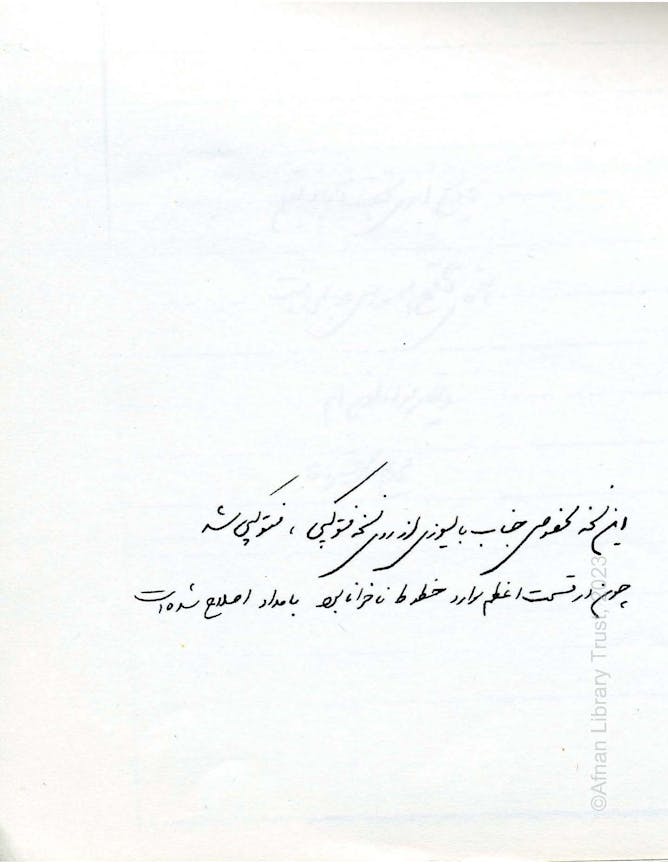 این نسخه مخصوص جناب بالیوزی از روی نسخه فتوکپی ، فتوکپی شد
چون در قسمت اعظم موارد خطوط ناخوانا بود با مداد اصلاح شده است
©Afnan Library Trust, 2023